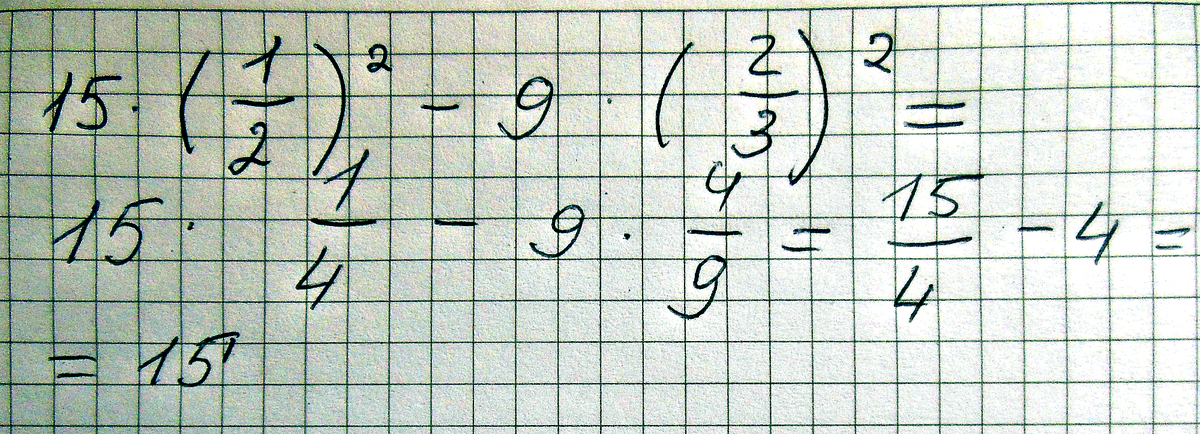 15 · (1/2)² - 9 · (2/3)² =
15 · 1/4 - 9 · 4/9 = 15/4 - 4 =
= 15